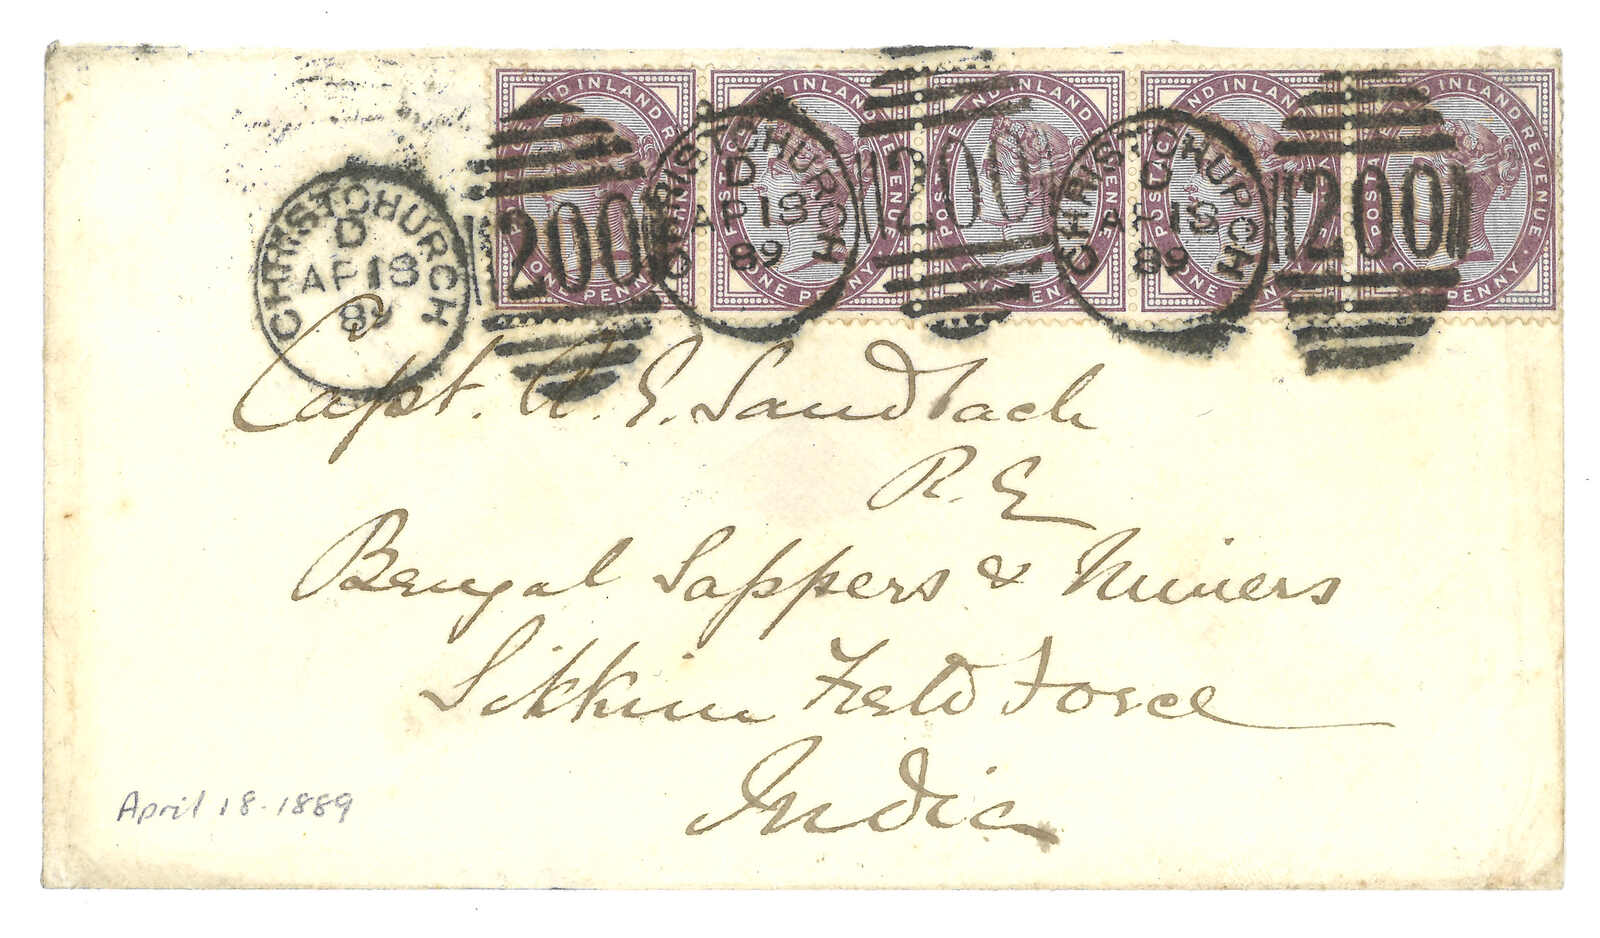 POSTAGE AND INLAND REVENUE POSTAGE AND INLAND REVENUE POSTAGE AND INLAND REVENUE POSTAGE AND INLAND REVENUE POSTAGE AND INLAND REVENUE
ONE PENNY ONE PENNY ONE PENNY ONE PENNY ONE PENNY
CHRISTCHURCH
D
AP 18
89
200
CHRISTCHURCH
D
AP 18
89
200
CHRISTCHURCH
D
AP 18
89
200
Capt. A. E. Sandbach
R. E
Bengal Sappers & Miners
Sikkim Field Force
India
April 18. 1889